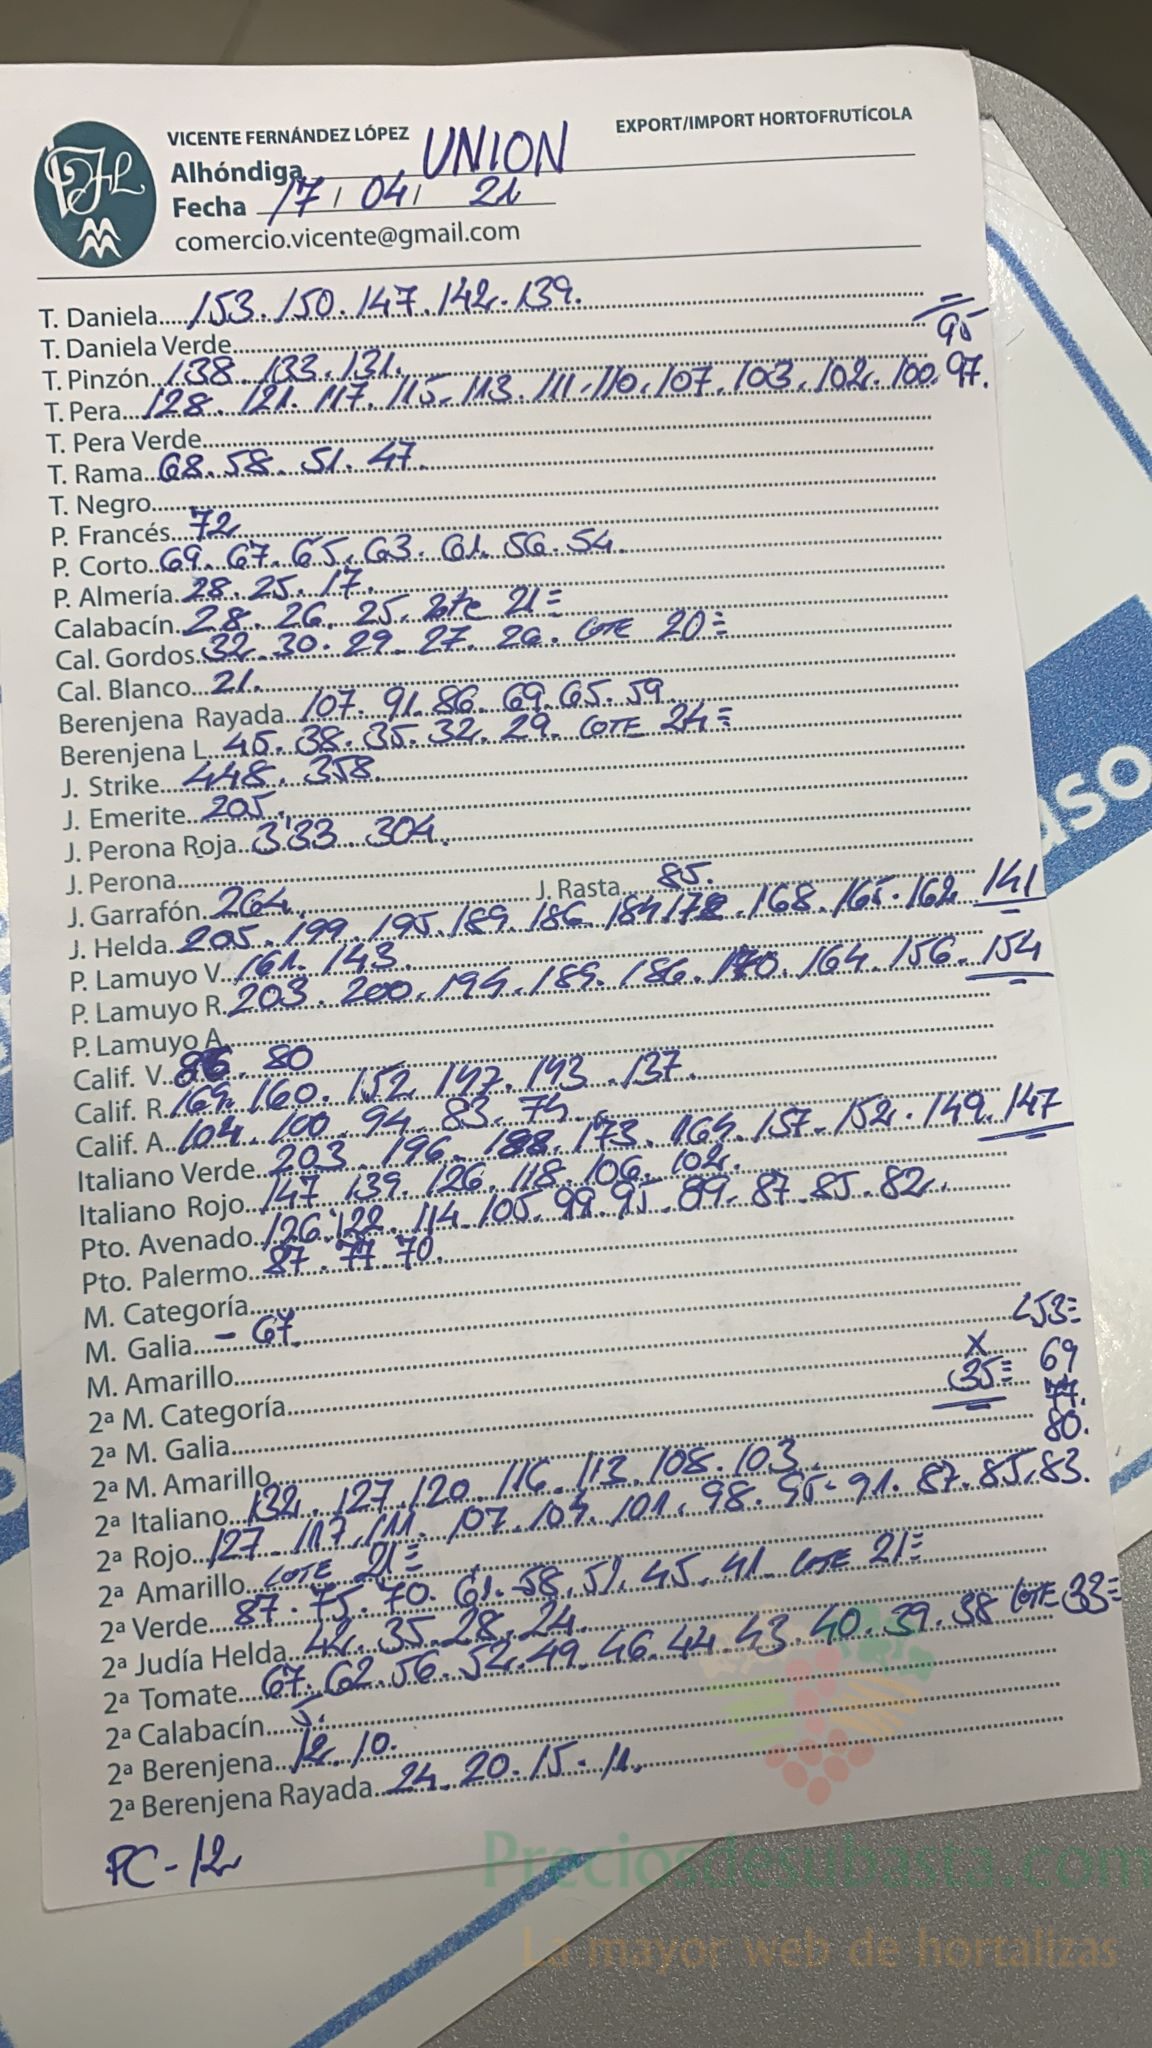 VICENTE FERNÁNDEZ LÓPEZ
EXPORT/IMPORT HORTOFRUTÍCOLA
Alhóndiga UNION
Fecha 17 / 04 / 21
comercio.vicente@gmail.com
T. Daniela 153. 150. 147. 142. 139.
T. Daniela Verde
T. Pinzón 138. 133. 131.
T. Pera 128. 121. 117. 115. 113. 111. 110. 107. 103. 102. 100. 97. 95=
T. Pera Verde
T. Rama 68. 58. 51. 47.
T. Negro
P. Francés 72
P. Corto 69. 67. 65. 63. 61. 56. 54.
P. Almería 28. 25. 17.
Calabacín 28. 26. 25. Lote 21=
Cal. Gordos 32. 30. 29. 27. 26. LOTE 20=
Cal. Blanco 21.
Berenjena Rayada 107. 91. 86. 69. 65. 59
Berenjena L. 45. 38. 35. 32. 29. LOTE 24=
J. Strike 448. 358.
J. Emerite 205.
J. Perona Roja 3'33. 304.
J. Perona
J. Garrafón 264. J. Rasta 85.
J. Helda 205. 199. 195. 189. 186. 184 178. 168. 165. 162 141
P. Lamuyo V. 161. 143.
P. Lamuyo R. 203. 200. 194. 189. 186. 170. 164. 156. 154
P. Lamuyo A.
Calif. V. 86. 80
Calif. R. 169. 160. 152. 147. 143. 137.
Calif. A. 104. 100. 94. 83. 74.
Italiano Verde 203. 196. 188. 173. 164. 157. 152. 149. 147
Italiano Rojo 147. 139. 126. 118. 106. 102.
Pto. Avenado 126. 122. 114. 105. 99. 95. 89. 87. 85. 82.
Pto. Palermo 87. 77. 70.
M. Categoría
M. Galia - 67.
M. Amarillo
2ª M. Categoría
2ª M. Galia
2ª M. Amarillo
2ª Italiano 132. 127. 120. 116. 113. 108. 103.
2ª Rojo 127. 117. 111. 107. 104. 101. 98. 95. 91. 87. 85. 83. 80. 77. 69 X 35= L53=
2ª Amarillo LOTE 21=
2ª Verde 87. 75. 70. 61. 58. 51. 45. 41. LOTE 21=
2ª Judía Helda 42. 35. 28. 24.
2ª Tomate 67. 62. 56. 52. 49. 46. 44 43. 40. 39. 38 LOTE 33=
2ª Calabacín 5.
2ª Berenjena 12. 10.
2ª Berenjena Rayada 24. 20. 15. 11.
PC - 12
aso
Preciosdesubasta.com
La mayor web de hortalizas